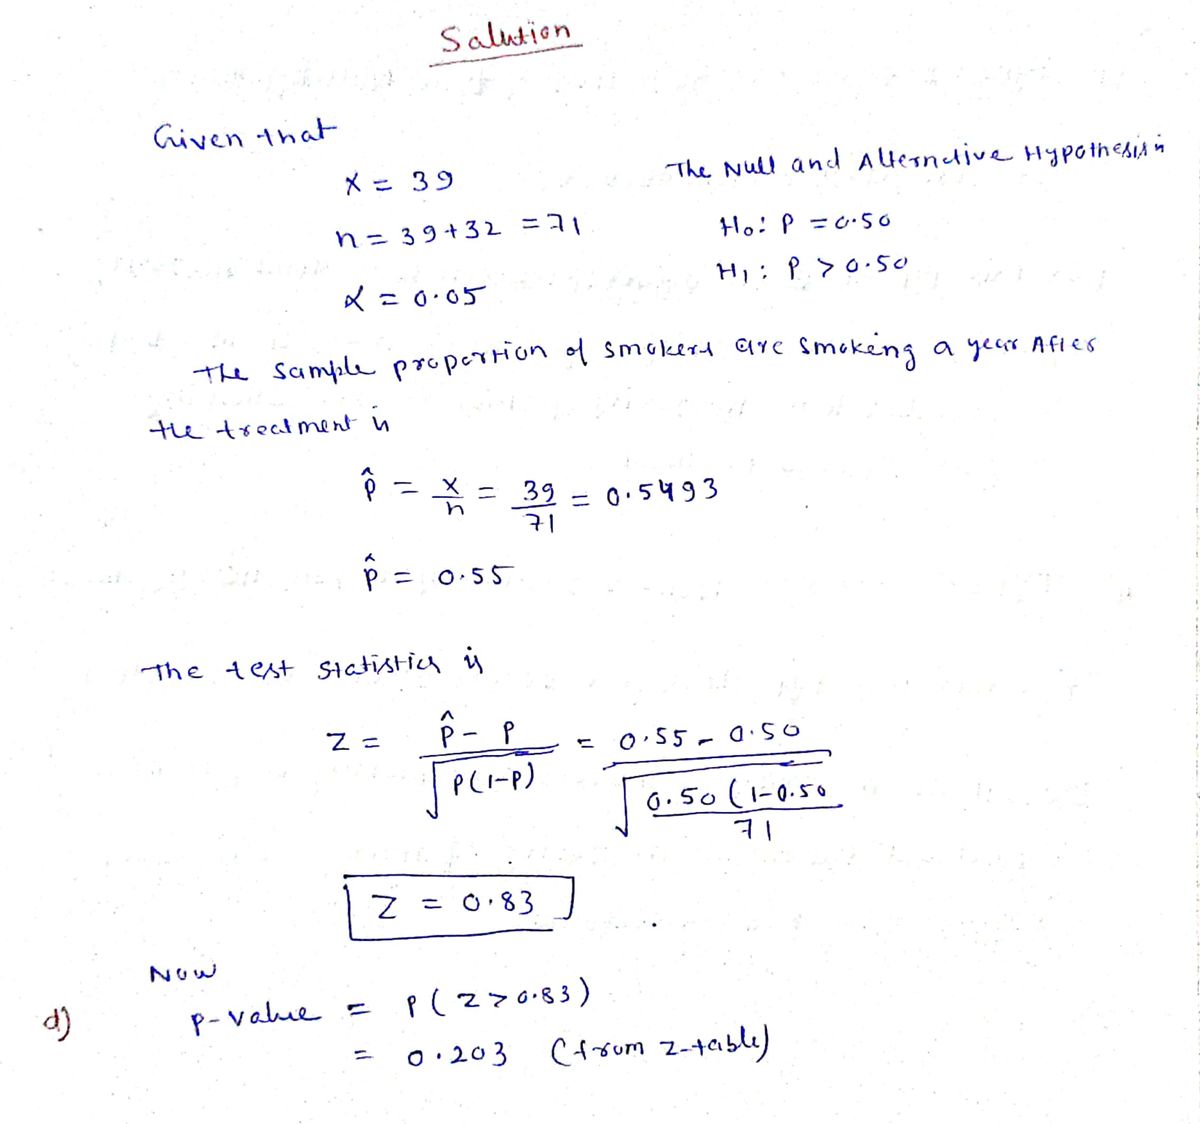 Salution
Given that
X = 39
n = 39+32 = 71
α = 0.05
The Null and Alternative Hypothesis is
H₀: P = 0.50
H₁: P > 0.50
The sample proportion of smokers are smoking a year After
the treatment is
p̂ = x/n = 39/71 = 0.5493
p̂ = 0.55
The test statistics is
Z = (p̂ - P)/√(P(1-P)) = (0.55 - 0.50)/√(0.50(1-0.50/71)
Z = 0.83
Now
d) P-value = P(Z>0.83)
= 0.203 (from z-table)